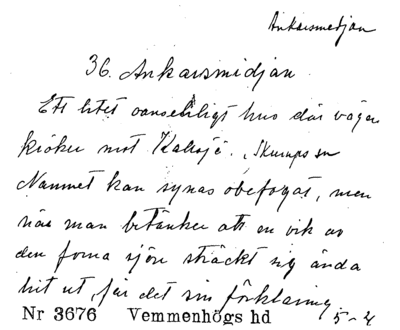 Ankarsmedjan
36. Ankarsmidjan
Ett litet oansenligt hus där vägen
kröker mot Kalsjö. Skurups sn
Namnet kan synas obefogat, men
när man betänker att en vik av
den forna sjön sträckt sig ända
hit ut, får det sin förklaring
Nr 3676 Vemmenhögs hd